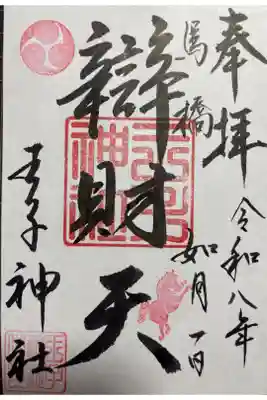 奉拝
馬橋
辯財天
令和八年
如月一日
王子神社